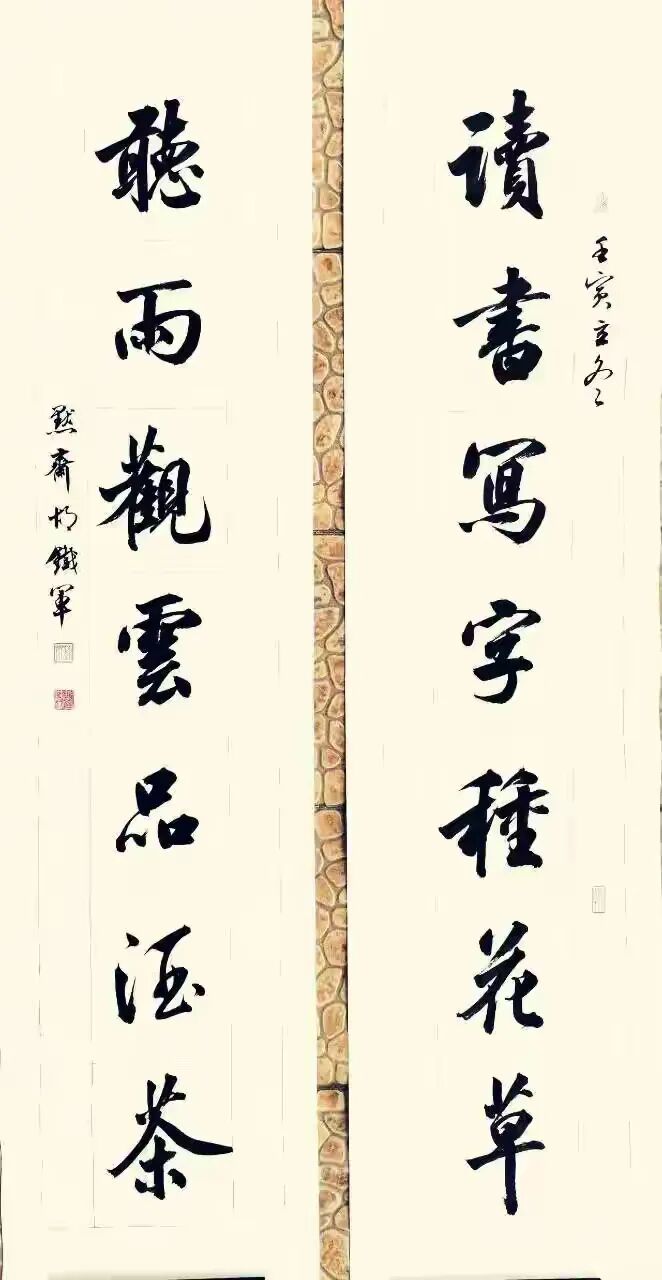 壬寅立冬
讀書寫字種花草
聽雨觀雲品酒茶
默齋胡鐵軍